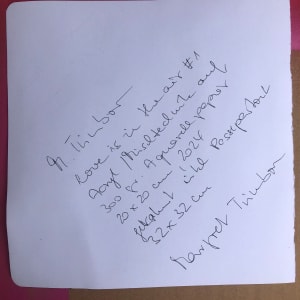 M. Thimbor
Love is in the air #1
Acryl Mischtechnik auf
300 gr. Aquarellpapier
20 x 20 cm 2024
gerahmt inkl Passepartout
32 x 32 cm
Margret Thimbor